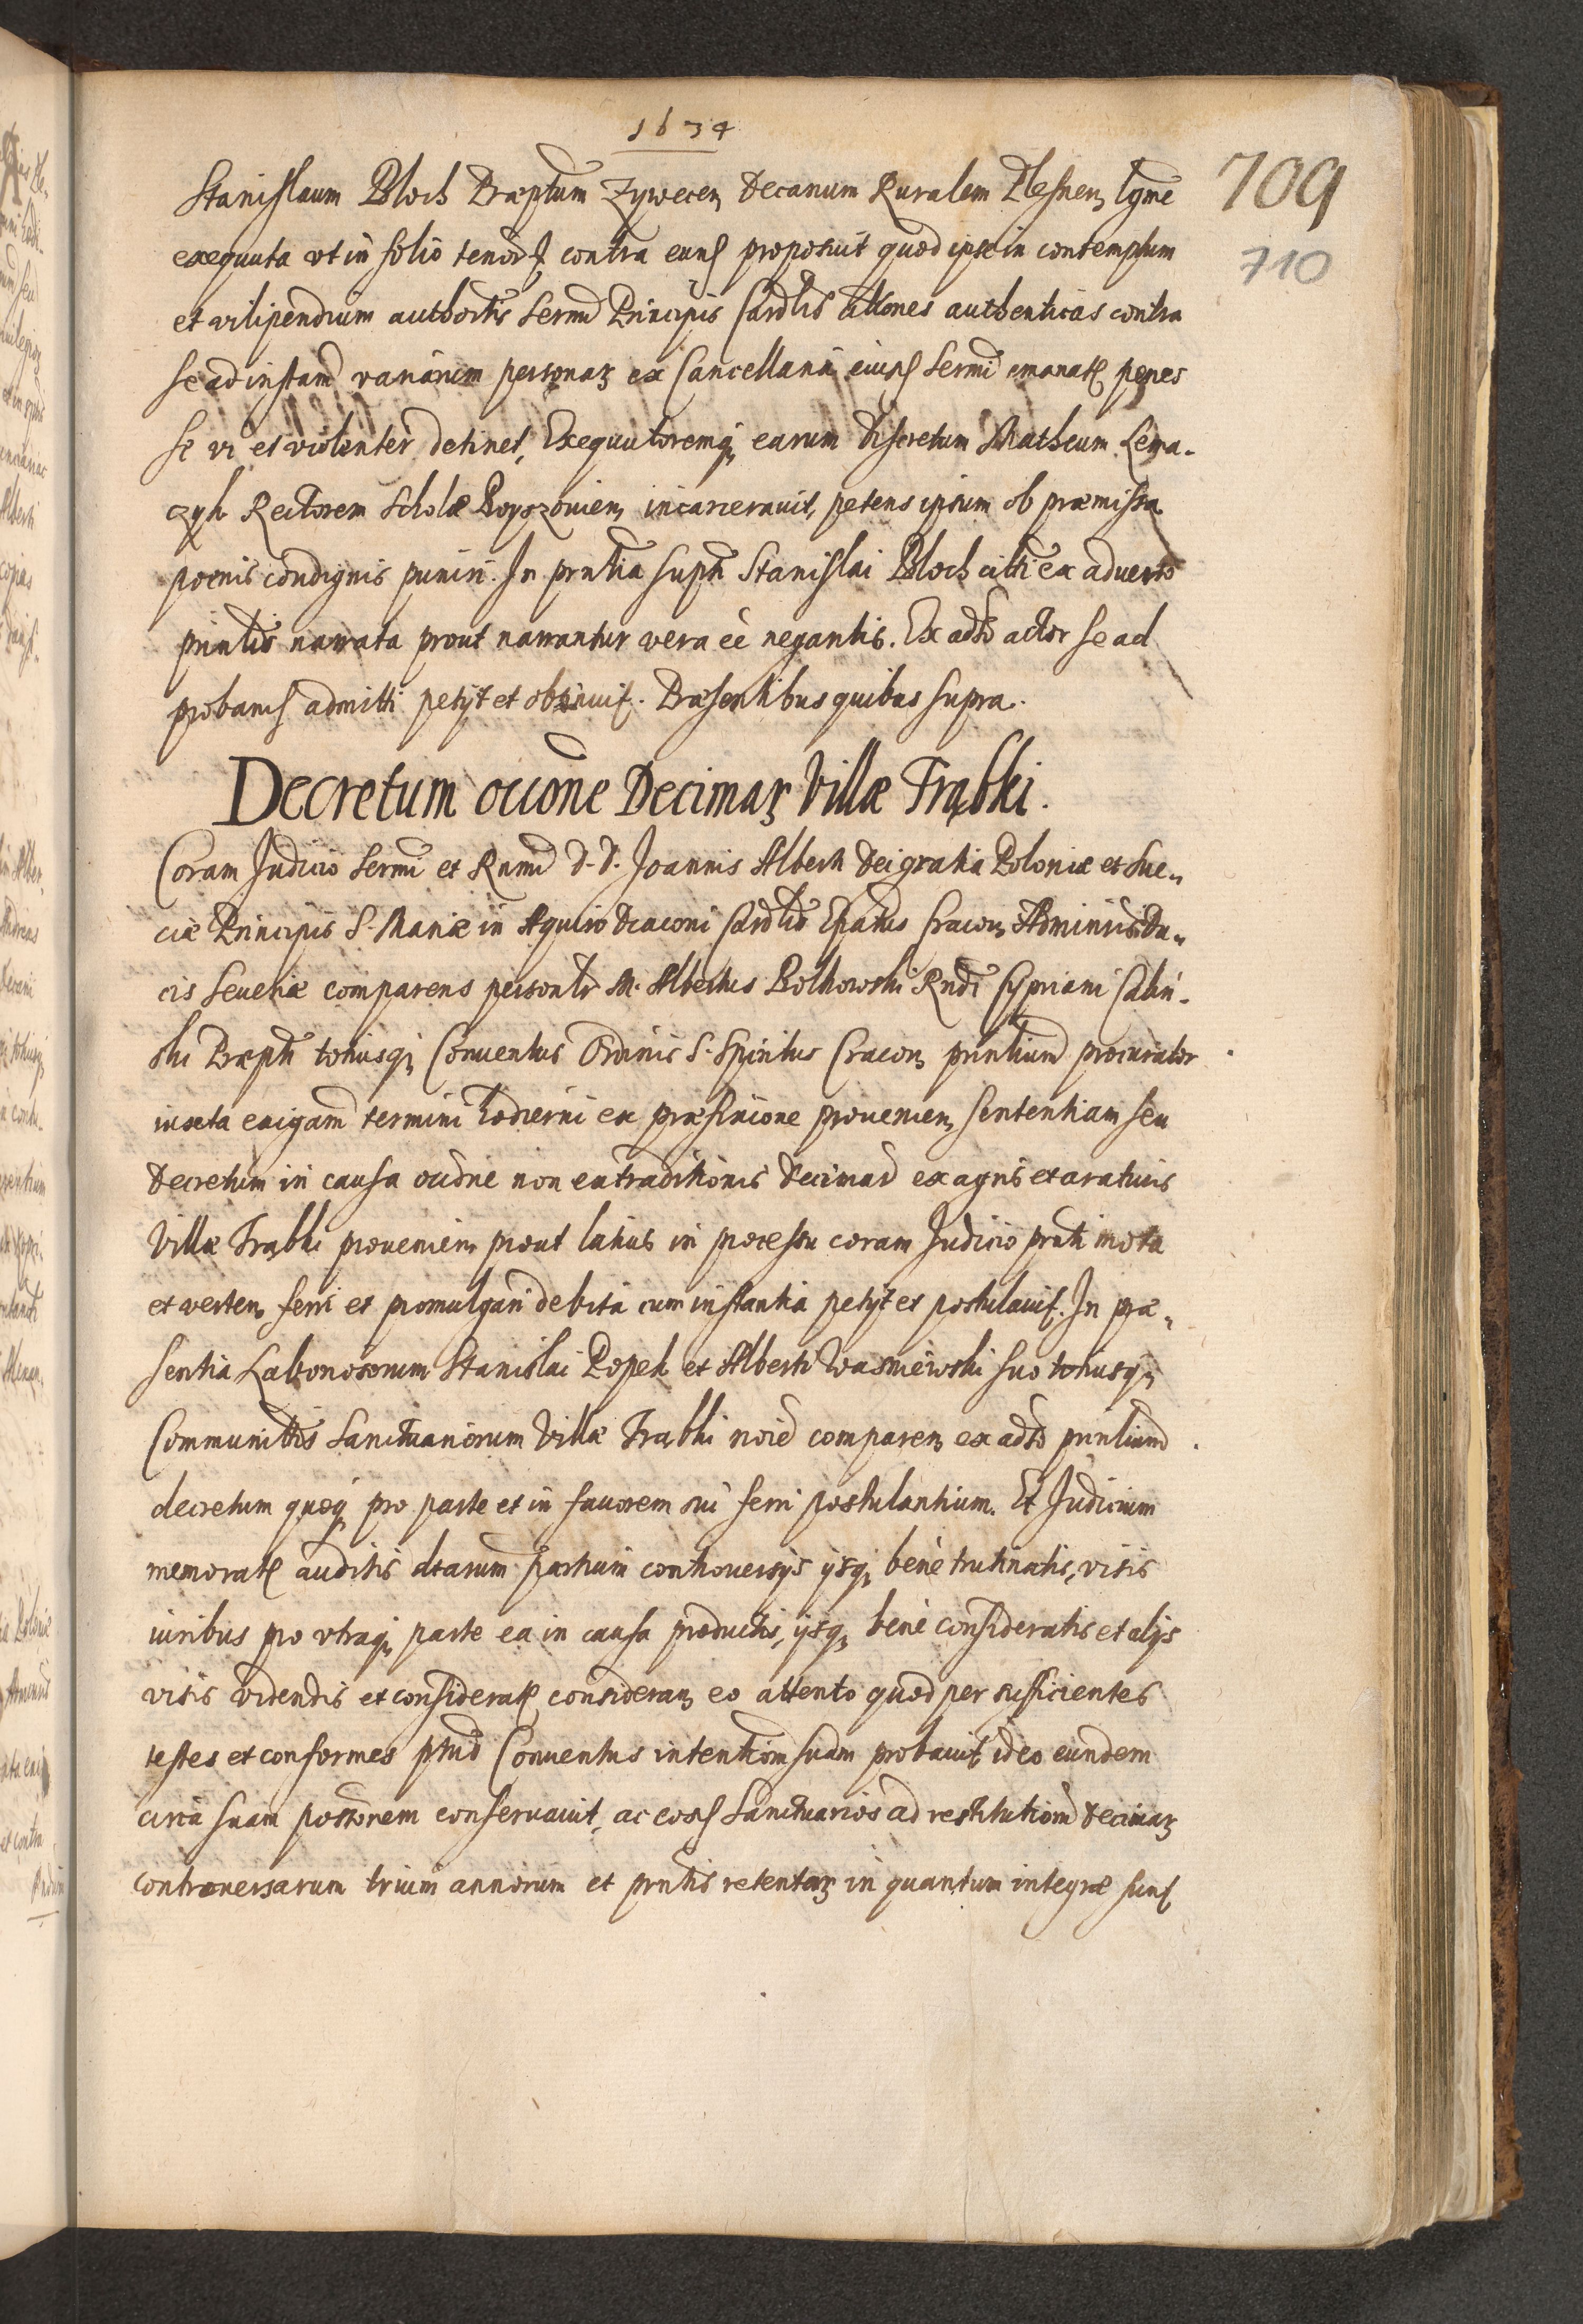 1634
709
710
Stanislaum Bloch Præptum Zywecen Decanum Ruralem Plesnen lgme
exequuta vt in folio tenoris contra eund proposuit quod ipse in contemptum
et vilipendium authoritis Sermi Principis Cardlis attones authenticas contra
se ad instam variarum personaꝝ ex Cancellaria eiusd Sermi emanatas penes
se vi et violenter detinet, Exequutoremq earum discretum Matheum Lema-
czyk Rectorem Scholæ incarceravit, petens ipsum ob præmissa
poenis condignis puniri. In prntia supti Stanislai Bloch citti ex adverso
prīntis narrata prout narrantur vera eē negantis. Ex adto actor se ad
proband admitti petijt et obtinuit. Præsentibus quibus supra.
Decretum occōne Decimaꝝ Villæ Frąbki.
Coram Judicio Sermi et Rnmi d. d. Joannis Alberti Dei gratia Poloniæ et Sue-
ciæ Principis S. Mariæ in Aquiro diaconi Cardlis Epatus Cracovn Administris Du-
cis Severiæ comparens personlr M. Albertus Bolkowski Rndi Cypriani
ski Præpti totiusq Conventus Ordinis S. Spiritus Cracovn prīntium procurator
iuxta exigam termini hodierni ex præfixione provenien sententiam seu
decretum in causa occōne non extraditionis decimaꝝ ex agris et araturis
Villæ Frąbki provenien prout latius in processu coram Judicio prnti mota
et verten ferri et promulgari debita cum instantia petijt et postulavit. In præ-
sentia Laboriosorum Stanislai Popek et Alberti Wasniewski suo totiusq
Communittis Sanctuariorum Villæ Frąbki noie comparen ex adto prīntium
decretum quoq pro parte et in favorem sui ferri postulantium. Et Judicium
memorat auditis dtarum partium controversijs ijsq bene trutinatis, visis
iuribus pro vtraq parte ea in causa productis, ijsq bene consideratis et alijs
visis videndis et considerat consideran eo attento quod per sufficientes
testes et conformes ptus Conventus intentiom suam probavit ideo eundem
circa suam possonem conservavit, ac eosd Sanctuarios ad restitutiom decimaꝝ
controversarum trium annorum et prntis retentaꝝ in quantum integræ sunt